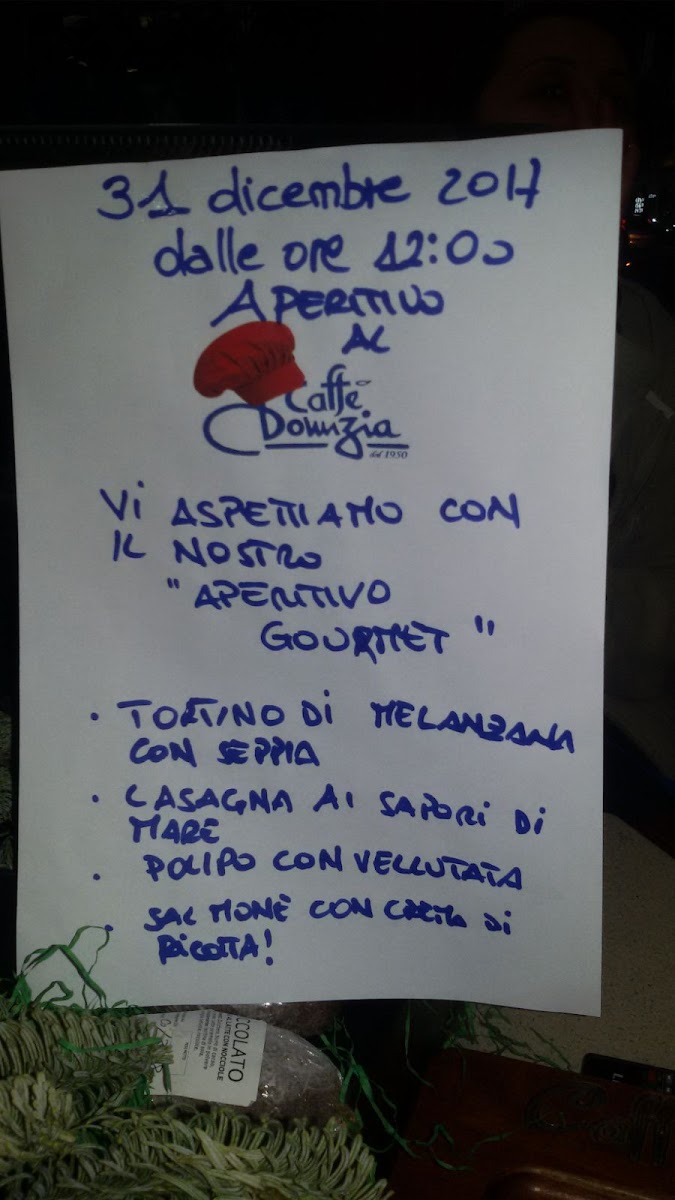 31 dicembre 2017
dalle ore 12:00
APERITIVO
AL
Caffè
Domizia
dal 1950
Vi ASPETTIAMO CON
IL NOSTRO
"APERITIVO
GOURMET"
• TORTINO Di MELANZANA
CON SEPPIA
• LASAGNA Ai SAPORi Di
MARE
• POLIPO CON VELLUTATA
• SALMONE CON CREMA Di
RiCOTTA!
CCOLATO
LATTE CON NOCCIOLE